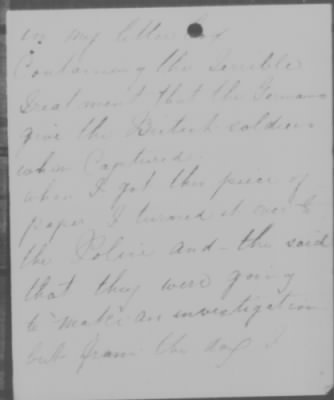 in my letter box
Containing the terrible
treatment that the Germans
give the British soldiers
when Captured.
when I got this piece of
paper I turned it over to
the Police and - the said
that they were going
to make an investigation
but from the day I